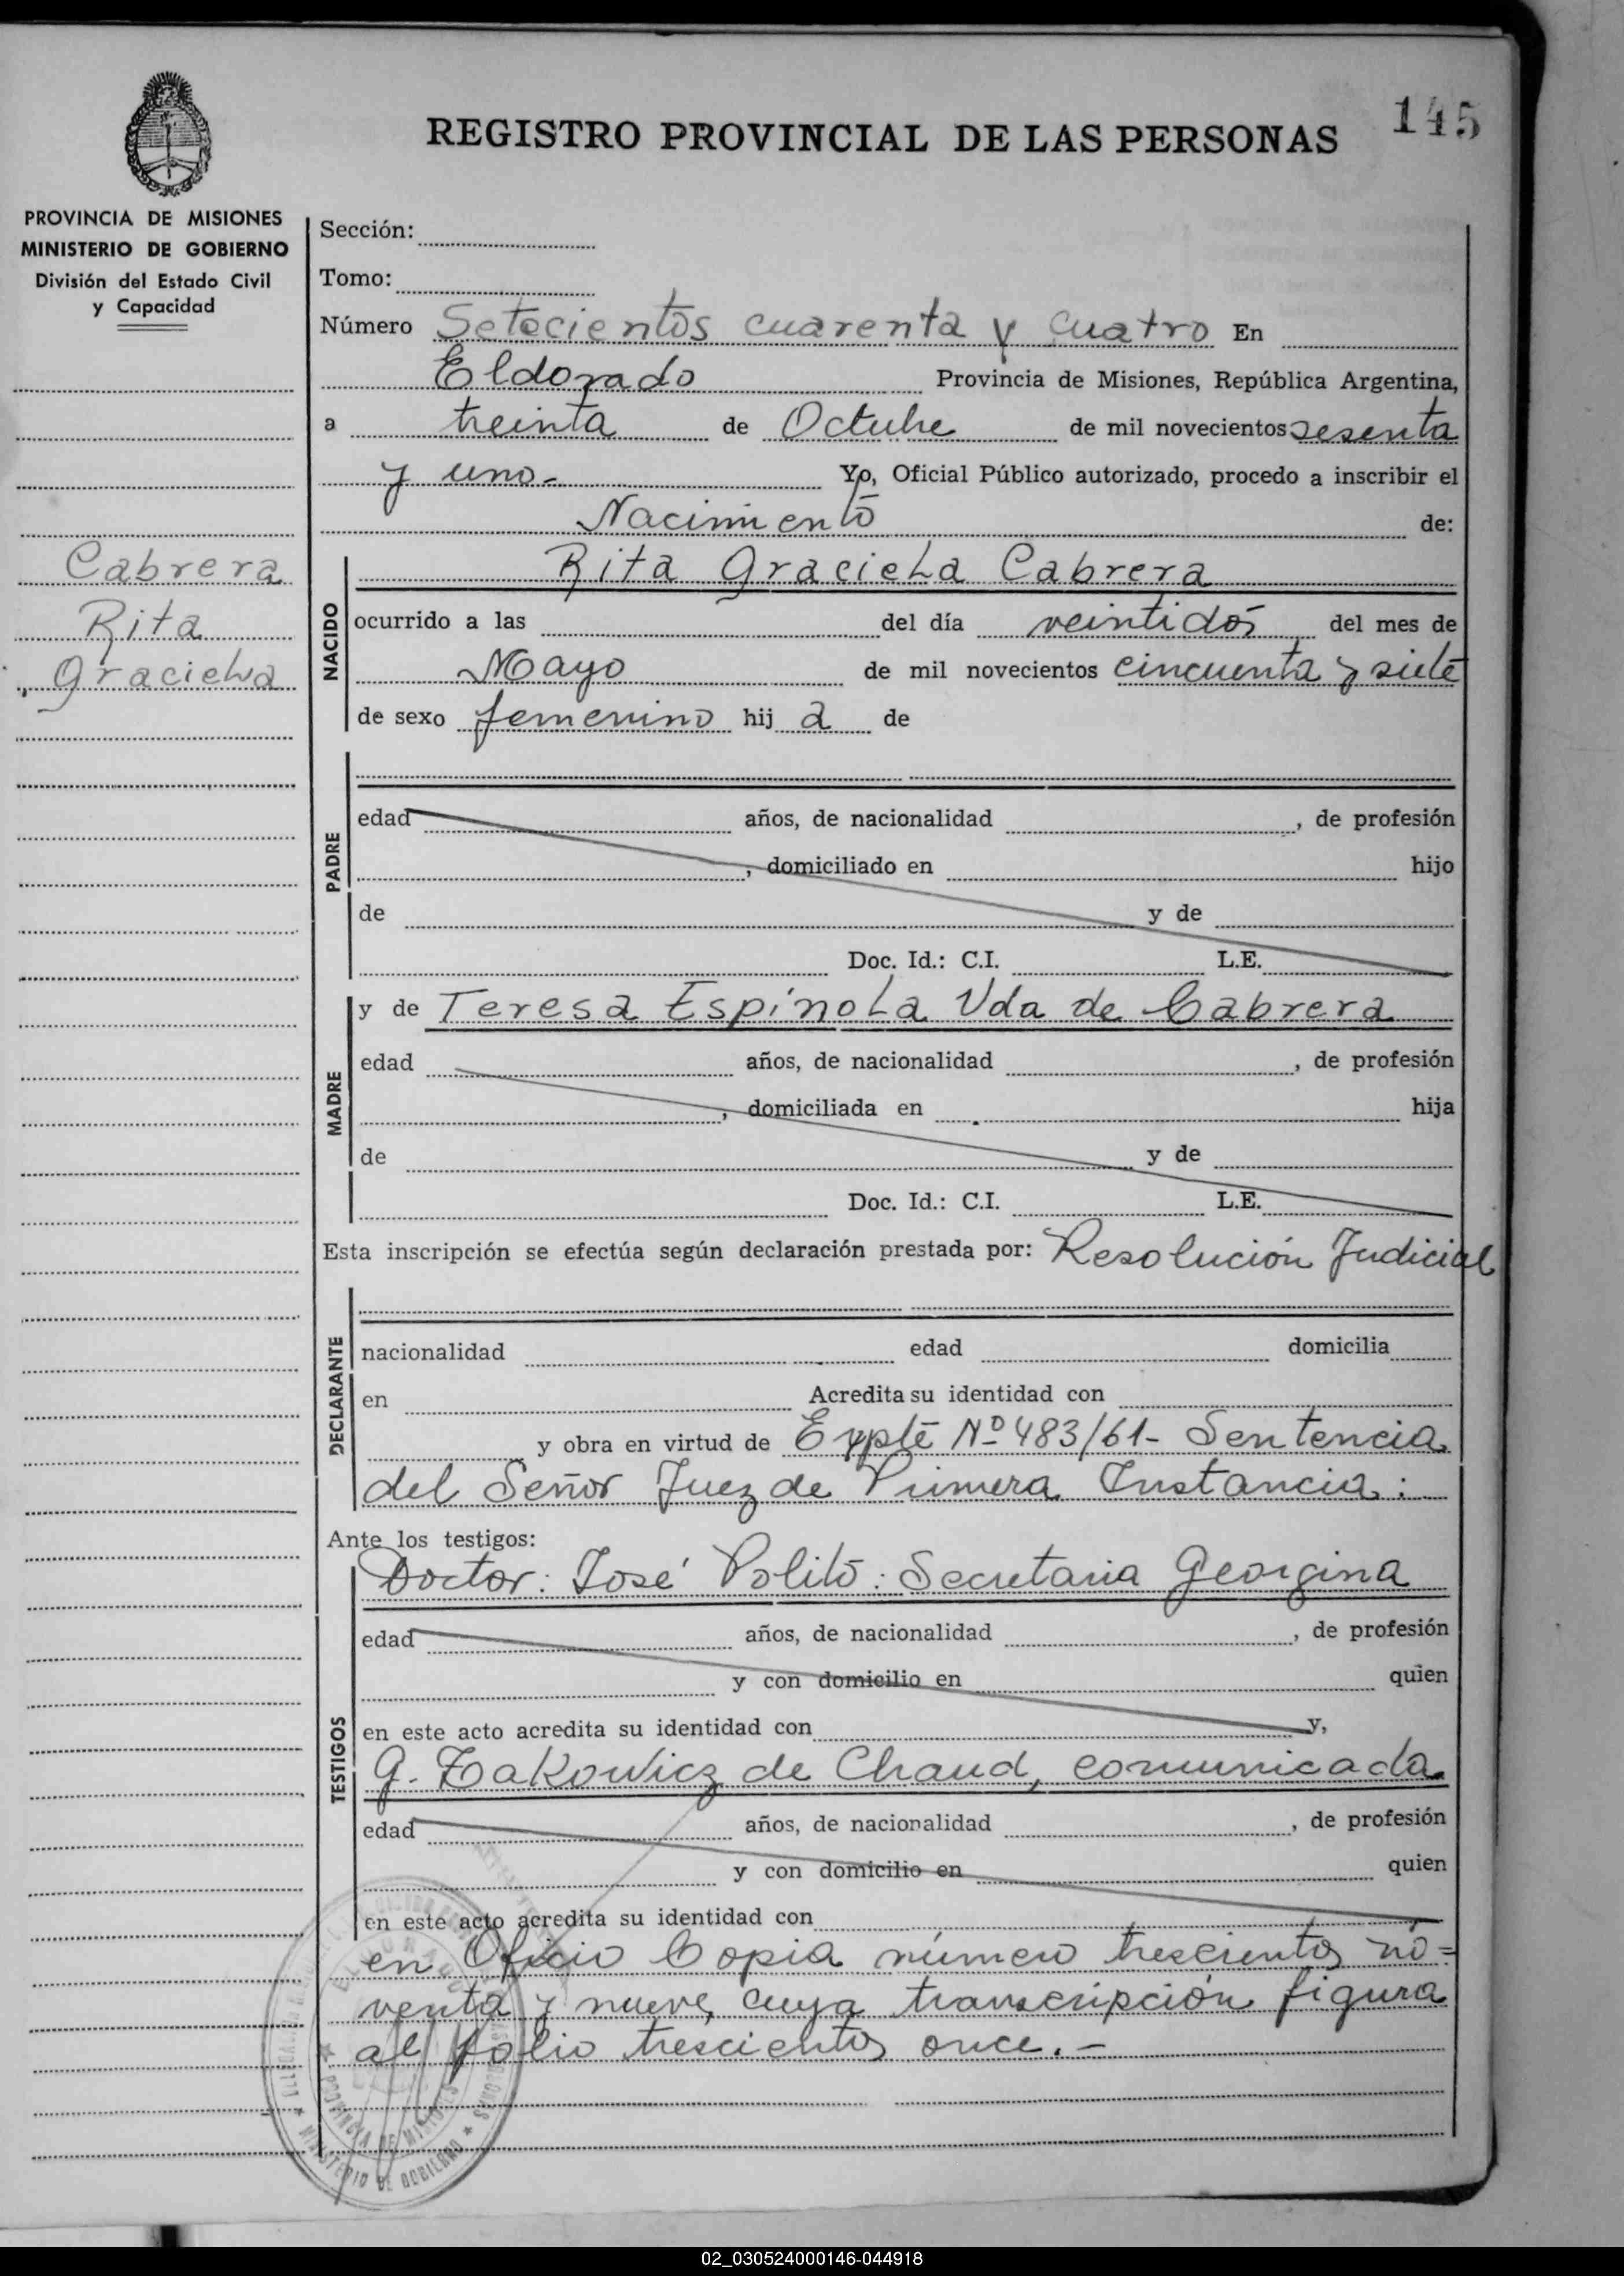 145
REGISTRO PROVINCIAL DE LAS PERSONAS
PROVINCIA DE MISIONES
MINISTERIO DE GOBIERNO
División del Estado Civil
y Capacidad
Cabrera
Rita
Graciela
Sección:
Tomo:
Número Setecientos cuarenta y cuatro En
Eldorado Provincia de Misiones, República Argentina,
a treinta de Octubre de mil novecientos sesenta
y uno.- Yo, Oficial Público autorizado, procedo a inscribir el
Nacimiento de:
NACIDO
Rita Graciela Cabrera
ocurrido a las del día veintidós del mes de
Mayo de mil novecientos cincuenta y siete
de sexo femenino hij a de
PADRE
edad años, de nacionalidad , de profesión
, domiciliado en hijo
de y de
Doc. Id.: C.I. L.E.
MADRE
y de Teresa Espínola Vda de Cabrera
edad años, de nacionalidad , de profesión
, domiciliada en hija
de y de
Doc. Id.: C.I. L.E.
Esta inscripción se efectúa según declaración prestada por: Resolución Judicial
DECLARANTE
nacionalidad edad domicilia
en Acredita su identidad con
y obra en virtud de Expte Nº 483/61- Sentencia
del Señor Juez de Primera Instancia:
Ante los testigos:
TESTIGOS
Doctor: José Polito: Secretaria Georgina
edad años, de nacionalidad , de profesión
y con domicilio en quien
en este acto acredita su identidad con y,
G. Zakowicz de Chaud, comunicada
edad años, de nacionalidad , de profesión
y con domicilio en quien
en este acto acredita su identidad con
en Oficio Copia número trescientos no=
venta y nueve, cuya transcripción figura
al folio trescientos once.-
PROVINCIA DE MISIONES
MINISTERIO DE GOBIERNO
02_030524000146-044918